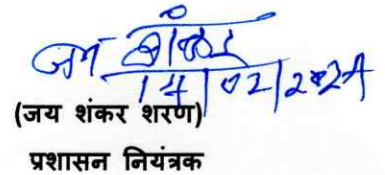 जय शंकर
14/02/2024
(जय शंकर शरण)
प्रशासन नियंत्रक